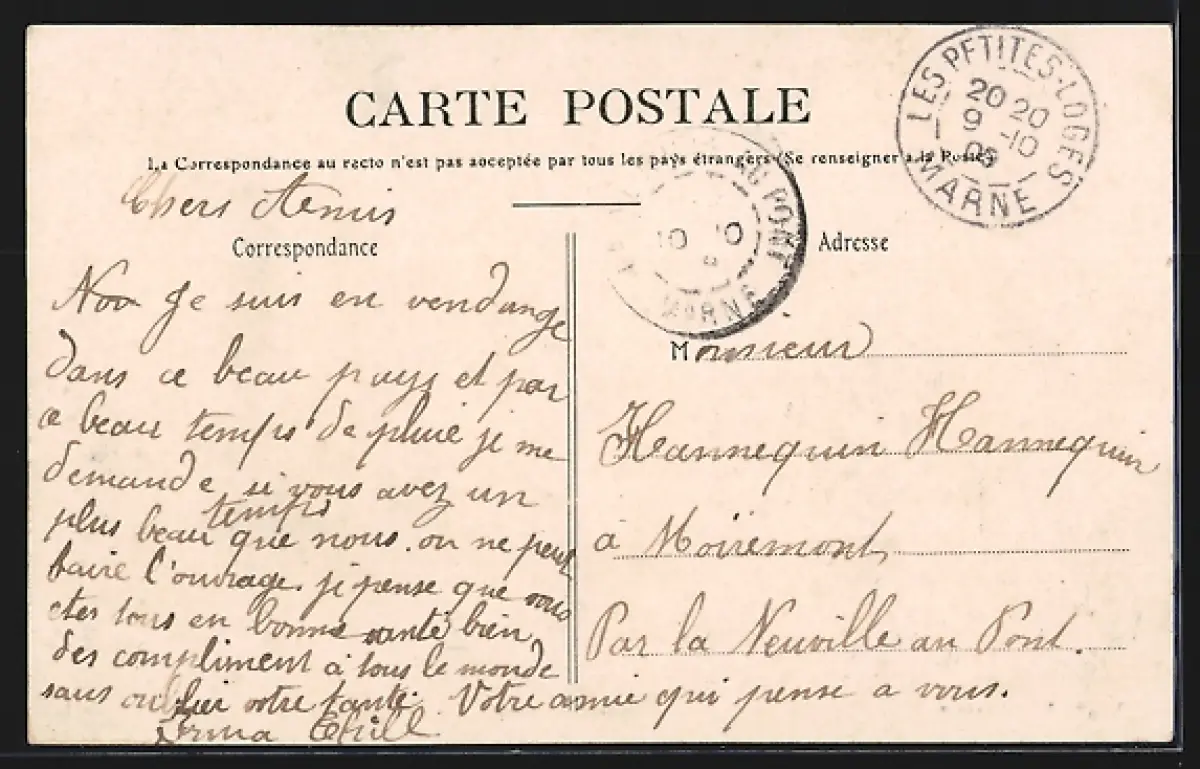 CARTE POSTALE
La Correspondance au recto n'est pas acceptée par tous les pays étrangers (Se renseigner à la Poste)
LES PETITES-LOGES
20 20
9 -10
05
MARNE
AU PONT
MARNE
Chers Aemis
Correspondance
Adresse
Je suis en vendange
dans ce beau pays et par
ce beau temps de pluie je me
demande si vous avez un
temps
plus beau que nous. on ne peut
faire l'ouvrage. je pense que vous
etes tous en bonne santé bien
des compliment à tous le monde
sans oublier votre tante. Votre amie qui pense a vous.
Irma
Monsieur
Hannequin Hannequin
à Moiremont
Par la Neuville au Pont.